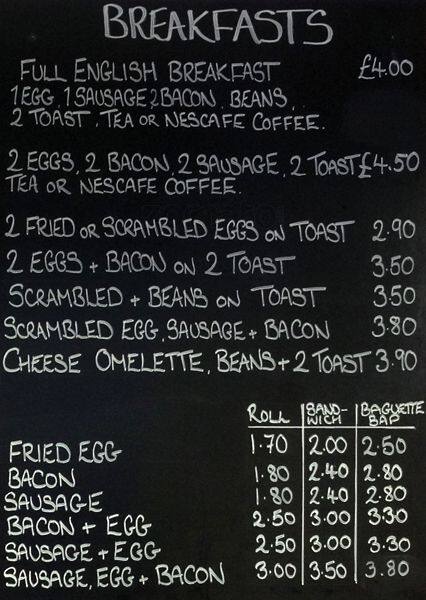 BREAKFASTS
FULL ENGLISH BREAKFAST £4.00
1 EGG, 1 SAUSAGE 2 BACON, BEANS,
2 TOAST, TEA OR NESCAFE COFFEE.
2 EGGS, 2 BACON, 2 SAUSAGE, 2 TOAST £4.50
TEA OR NESCAFE COFFEE.
2 FRIED OR SCRAMBLED EGGS ON TOAST 2.90
2 EGGS + BACON ON 2 TOAST 3.50
SCRAMBLED + BEANS ON TOAST 3.50
SCRAMBLED EGG, SAUSAGE + BACON 3.80
CHEESE OMELETTE, BEANS + 2 TOAST 3.90
ROLL SAND- BAGUETTE
WICH BAP
FRIED EGG 1.70 2.00 2.50
BACON 1.80 2.40 2.80
SAUSAGE 1.80 2.40 2.80
BACON + EGG 2.50 3.00 3.30
SAUSAGE + EGG 2.50 3.00 3.30
SAUSAGE, EGG + BACON 3.00 3.50 3.80